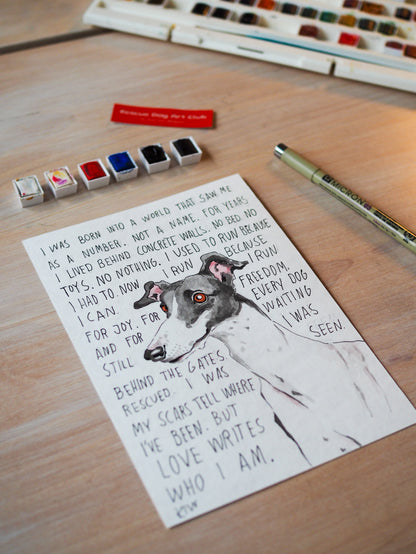 Rescue Dog Art Club
MICRON
I WAS BORN INTO A WORLD THAT SAW ME
AS A NUMBER. NOT A NAME. FOR YEARS
I LIVED BEHIND CONCRETE WALLS. NO BED. NO
TOYS. NO NOTHING. I USED TO RUN BECAUSE
I HAD TO. NOW I RUN BECAUSE I RUN
I CAN. FREEDOM.
FOR JOY. FOR EVERY DOG
AND FOR WAITING
STILL I WAS
SEEN.
BEHIND THE GATES.
RESCUED. I WAS
MY SCARS TELL WHERE
I'VE BEEN. BUT
LOVE WRITES
WHO I AM.